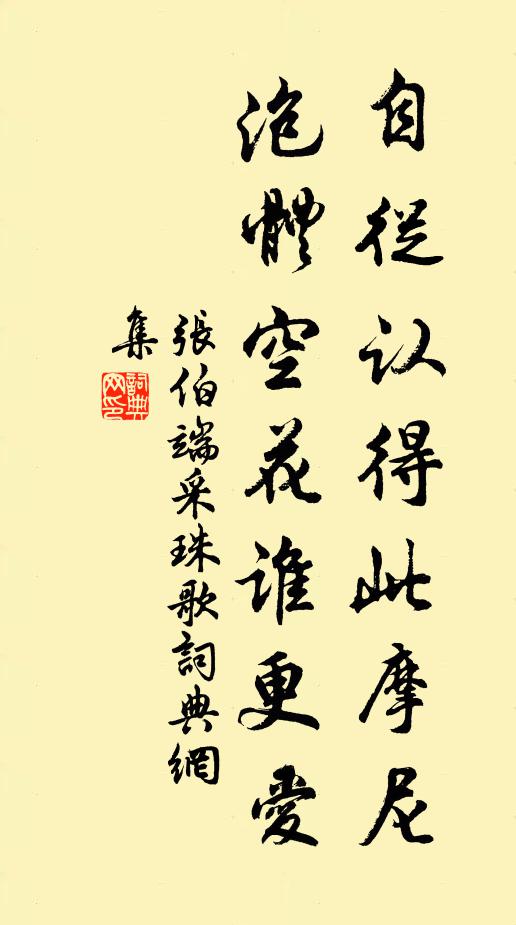 自從认得此摩尼
泡體空花誰更愛
張伯端采珠歌詞典網
集
詞典
网印